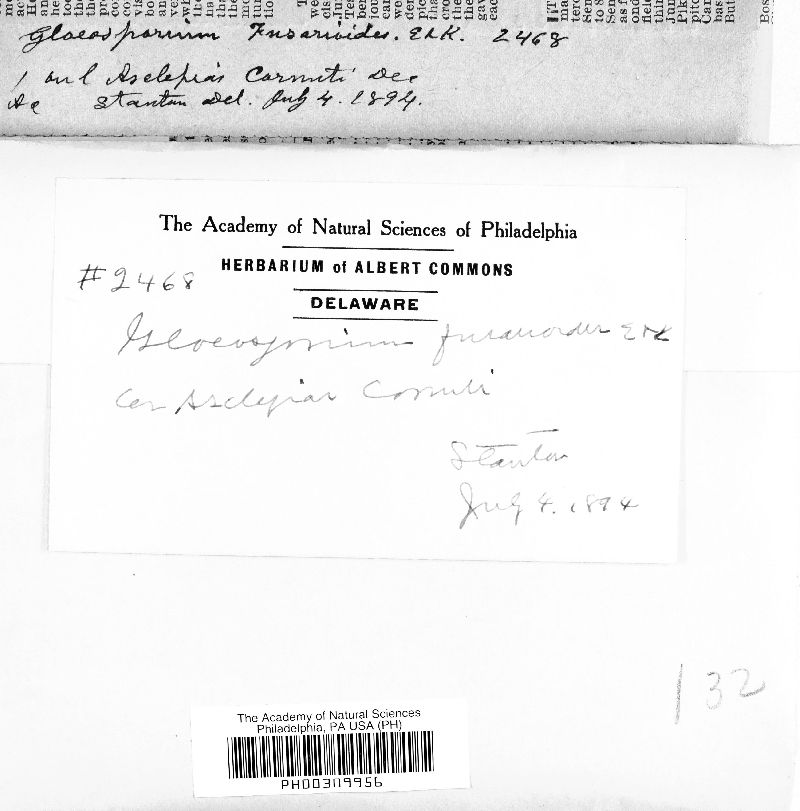 Gloeosporium Fusarioides. E&K. 2468
on l Asclepias Cornuti Dec
Stanton Del. July 4. 1894.
The Academy of Natural Sciences of Philadelphia
HERBARIUM of ALBERT COMMONS
#2468
DELAWARE
Gloeosporium fusarioides E&K
on Asclepias Cornuti
Stanton
July 4. 1894
132
The Academy of Natural Sciences
Philadelphia, PA USA (PH)
PH00309956